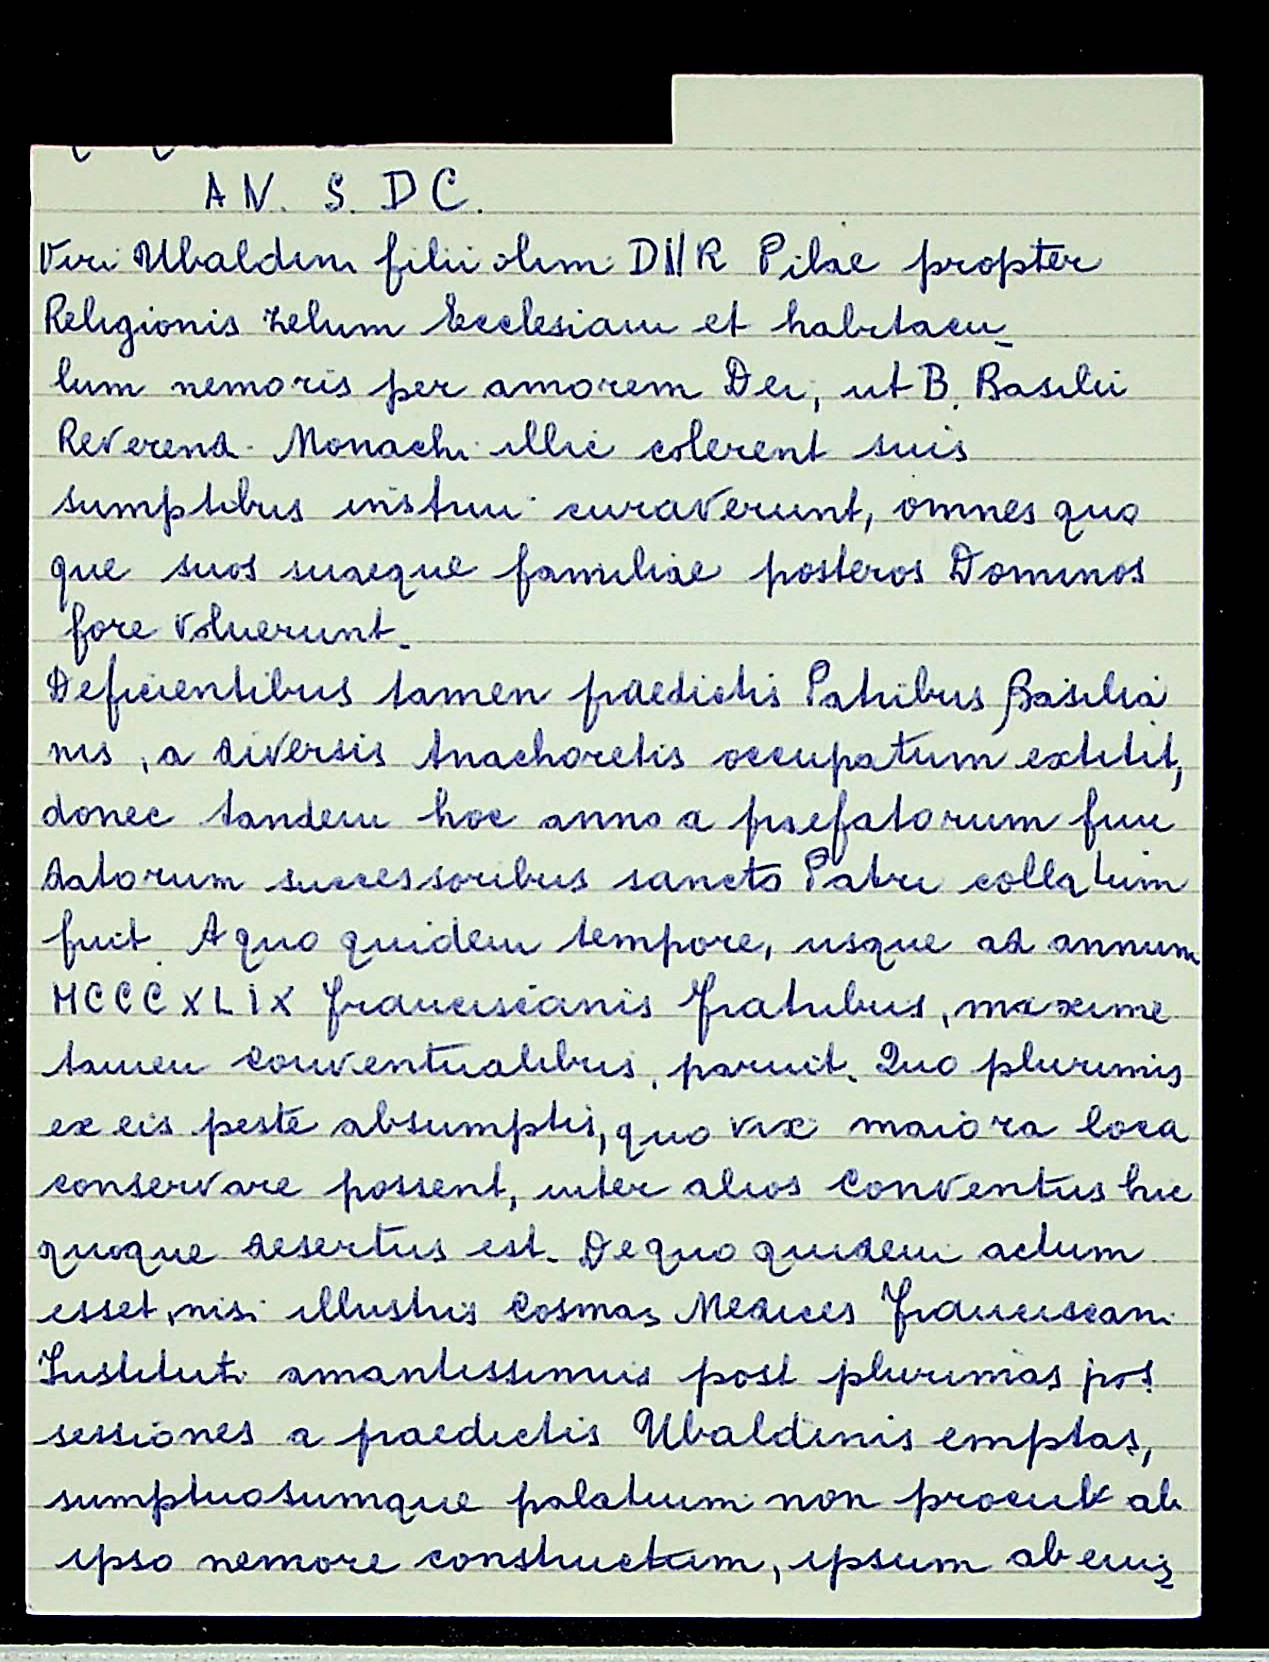 AN. S. DC.
Viri Ubaldini filii olim DNR Pilae propter
Religionis zelum Ecclesiam et habitacu_
lum nemoris per amorem Dei, ut B. Basilii
Reverend. Monachi illic colerent suis
sumptibus instrui curaverunt, omnes quo
que suos suaeque familiae posteros Dominos
fore voluerunt.
Deficientibus tamen praedictis Patribus Basilia
nis, a diversis Anachoretis occupatum extitit,
donec tandem hoc anno a praefatorum fun
datorum successoribus sancto Patri collatum
fuit. A quo quidem tempore, usque ad annum
MCCCXLIX Franciscanis Fratribus, maxime
tamen Conventualibus, paruit. Quo plurimis
ex eis peste absumptis, quo vix maiora loca
conservare possent, inter alios Conventus hic
quoque desertus est. De quo quidem actum
esset, nisi illustris Cosmas Medices Franciscani
Instituti amantissimus post plurimas pos
sessiones a praedictis Ubaldinis emptas,
sumptuosumque palatium non procul ab
ipso nemore constructum, ipsum ab eius